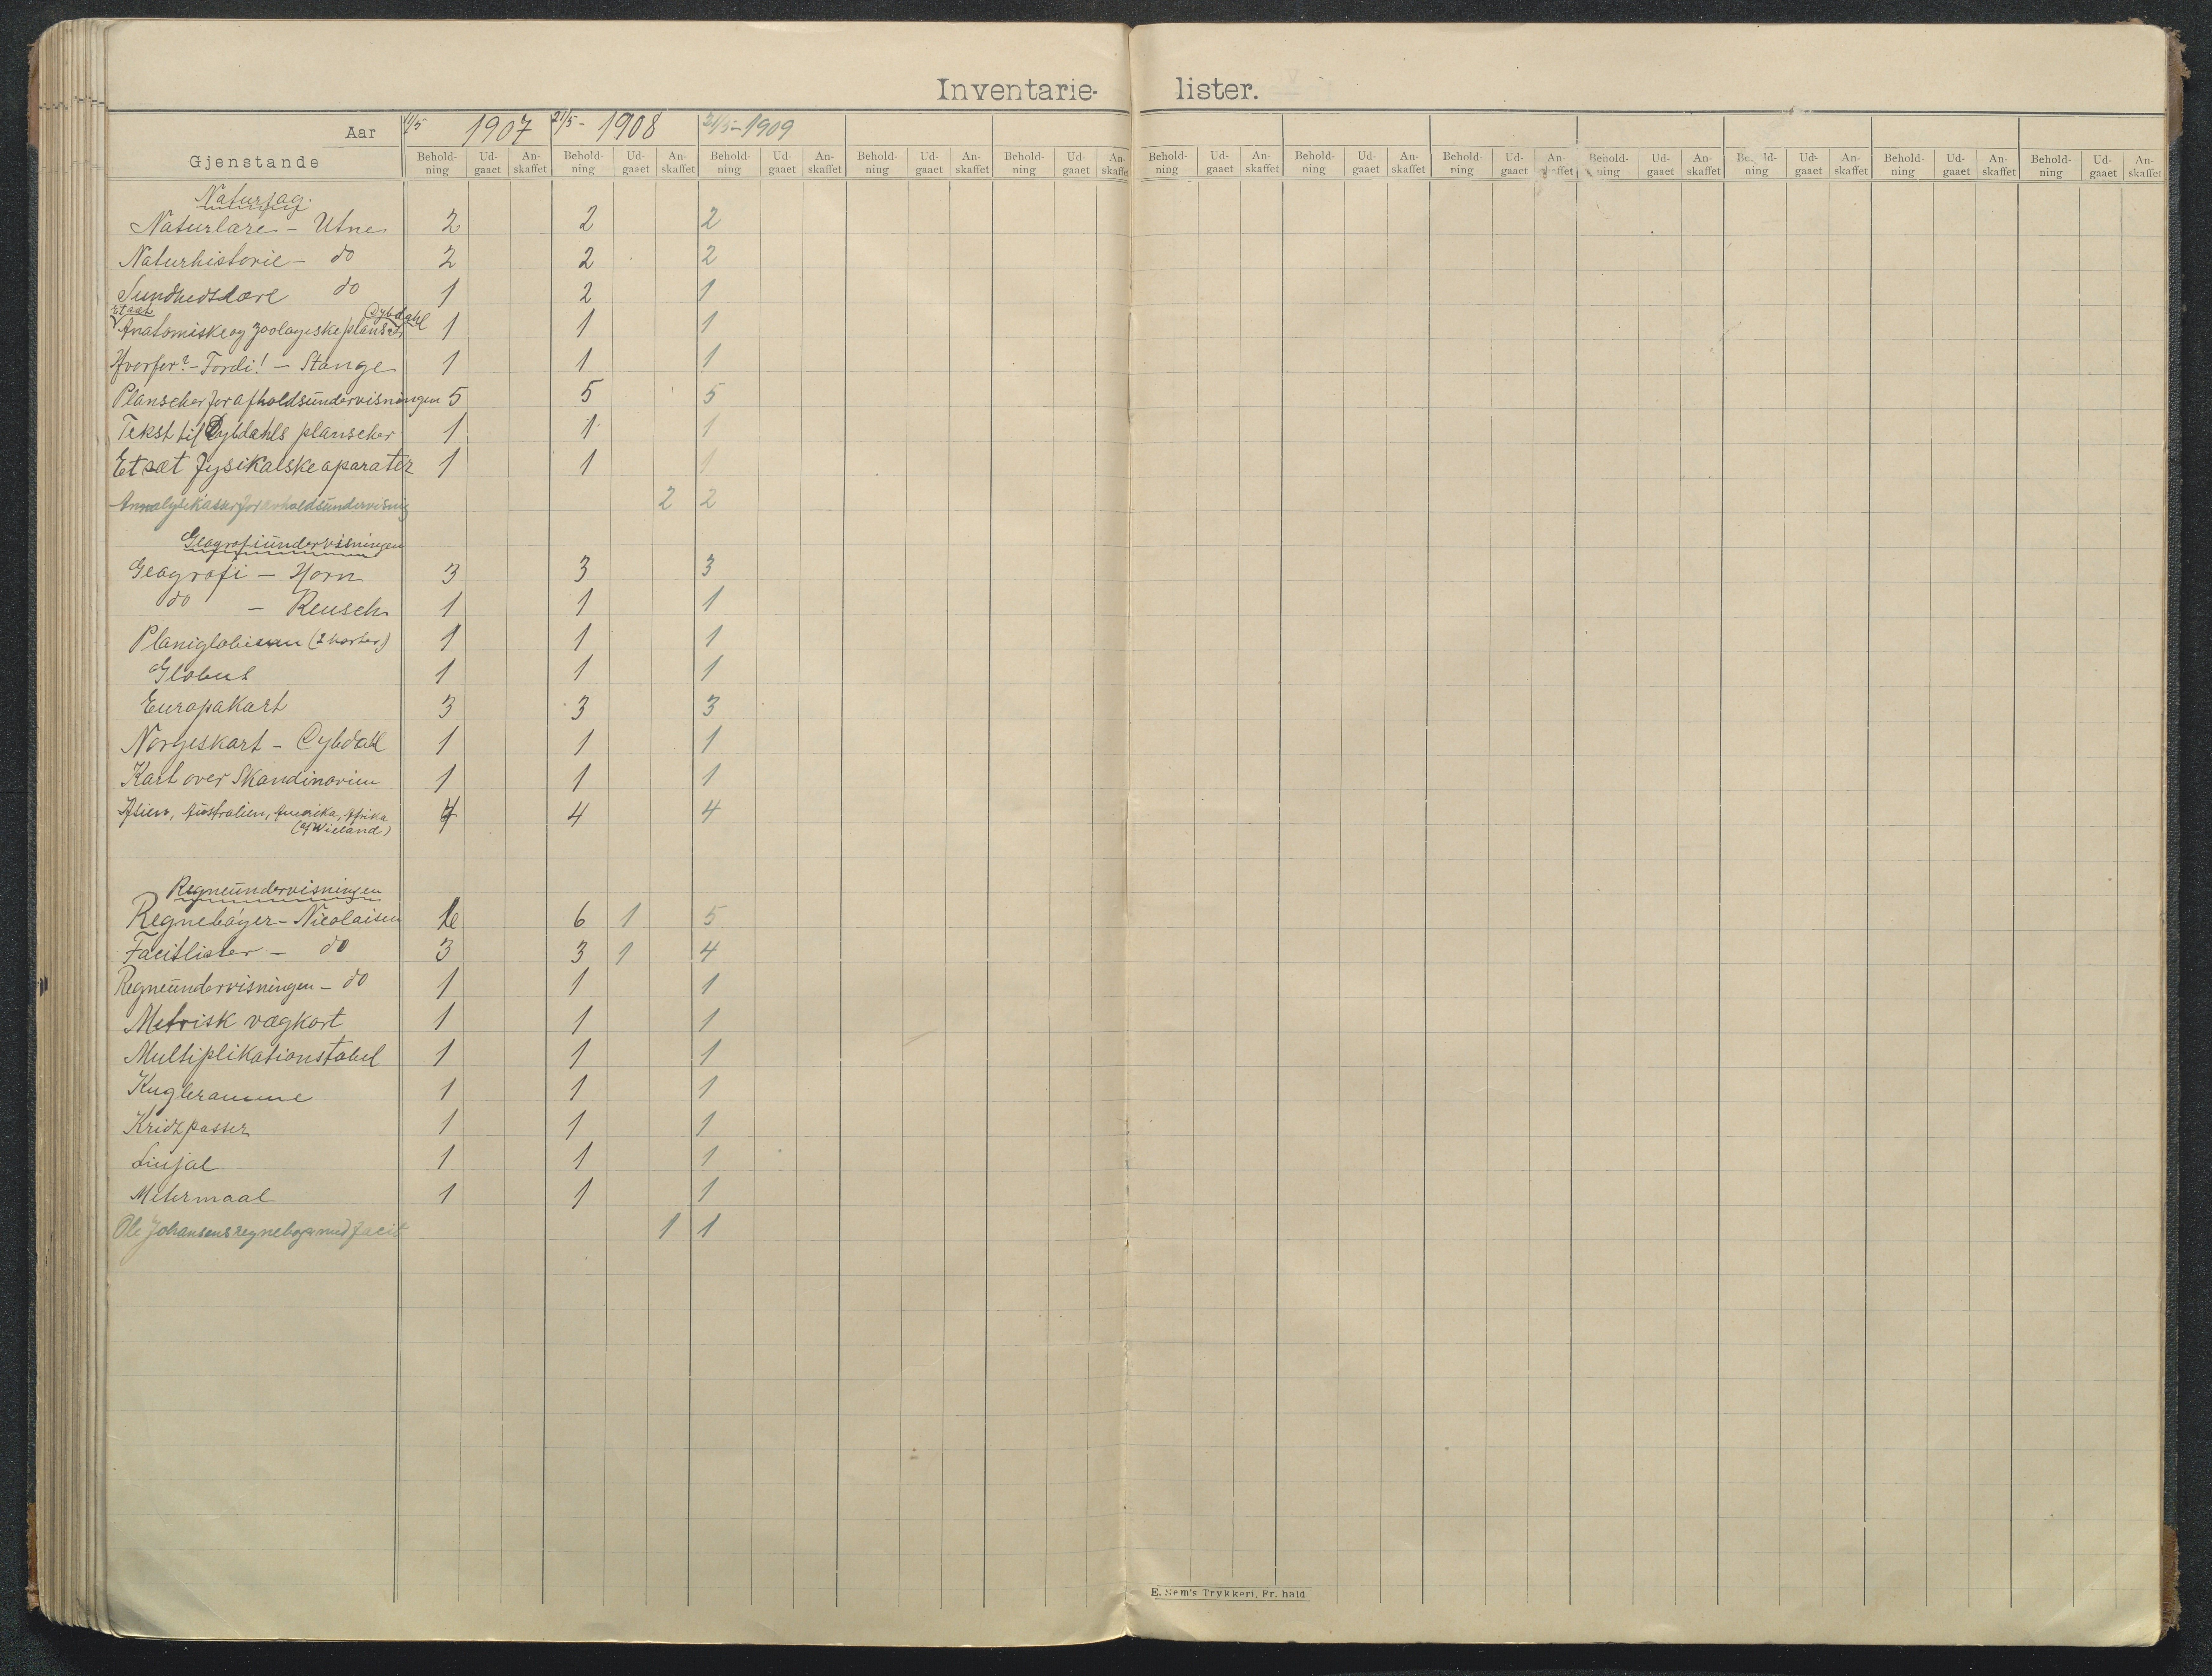 Inventarie- lister.
Aar 11/5 1907 21/5- 1908 21/5-1909
Gjenstande Behold-ning Ud-gaaet An-skaffet Behold-ning Ud-gaaet An-skaffet Behold-ning Ud-gaaet An-skaffet Behold-ning Ud-gaaet An-skaffet Behold-ning Ud-gaaet An-skaffet Behold-ning Ud-gaaet An-skaffet Behold-ning Ud-gaaet An-skaffet Behold-ning Ud-gaaet An-skaffet Behold-ning Ud-gaaet An-skaffet Behold-ning Ud-gaaet An-skaffet Behold-ning Ud-gaaet An-skaffet Behold-ning Ud-gaaet An-skaffet
Naturfag.
Naturlære - Utne 2 2 2
Naturhistorie - do 2 2 2
Sundhedslære do 1 2 1
Et sæt Dybdahl
Anatomiske og zoologiske planscher 1 1 1
Hvorfor? - Fordi! - Stange 1 1 1
Planscher for afholdsundervisningen 5 5 5
Tekst til Dybdahls planscher 1 1 1
Et sæt fysikalske aparater 1 1 1
Annalysekasser for avholdsundervisnig 2 2
Geografiundervisningen
Geografi - Horn 3 3 3
do - Reusch 1 1 1
Planiglobium (2 karter) 1 1 1
Globus 1 1 1
Europakart 3 3 3
Norgeskart - Dybdahl 1 1 1
Kart over Skandinavien 1 1 1
Asien, Australien, Amerika, Afrika 4 4 4
(af Wieland)
Regneundervisningen
Regnebøger - Nicolaisen 6 6 1 5
Facitlister - do 3 3 1 4
Regneundervisningen - do 1 1 1
Metrisk vægkart 1 1 1
Multiplikationstabel 1 1 1
Kugleramme 1 1 1
Kridtpasser 1 1 1
Linjal 1 1 1
Metermaal 1 1 1
Ole Johansens regnebog med facit 1 1
E. Sem's Trykkeri, Fr.hald